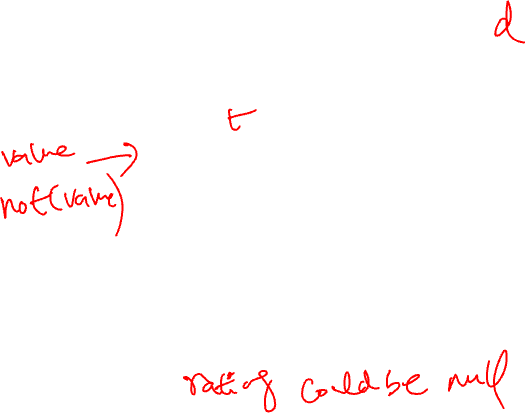 d
t
value →
not(value)
rating could be null